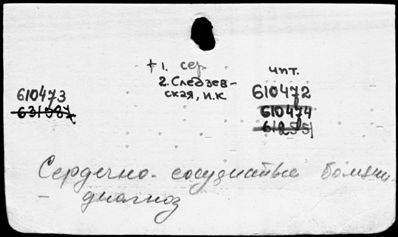 + 1. сер
2. Следзев-
ская, И.К
чит.
610473
631081
610472
610474
61255
Сердечно-сосудистые болезни
- диагноз